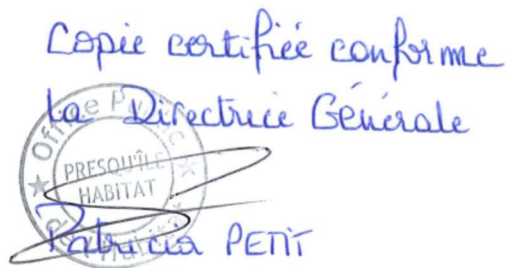 Copie certifiée conforme
la Directrice Générale
Office Public
PRESQU'ÎLE
HABITAT
Patricia PETIT